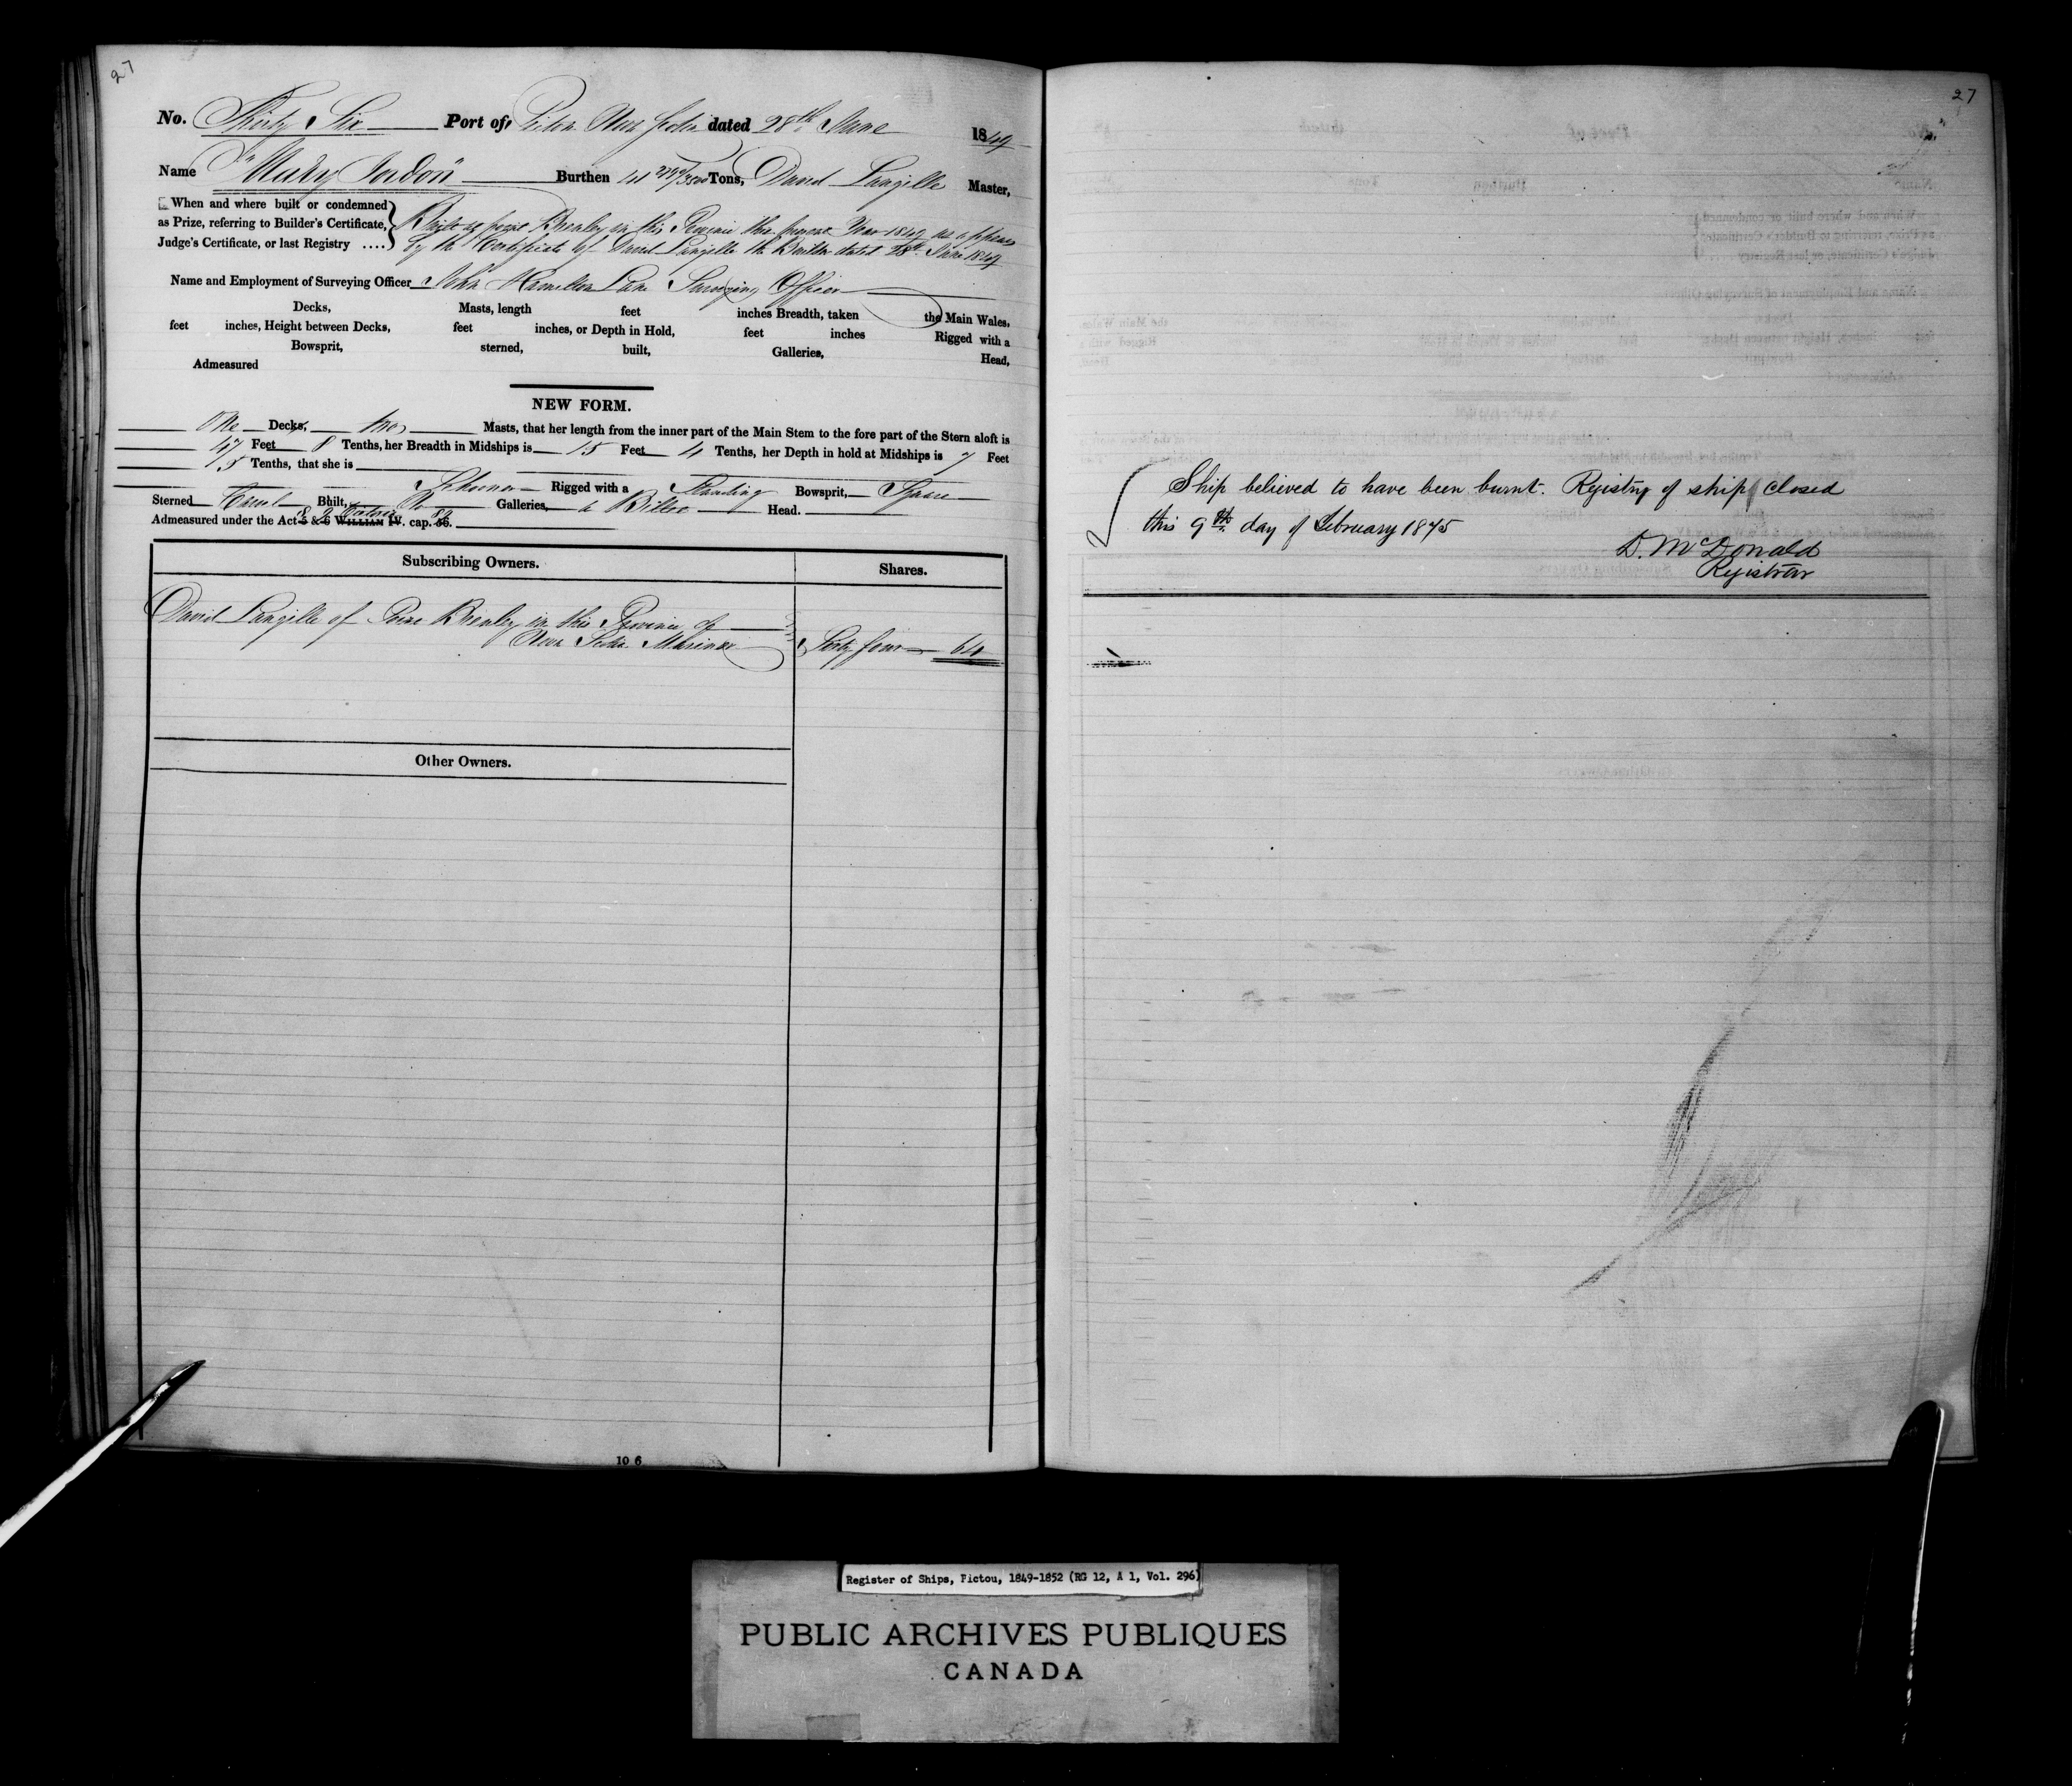 27
No. Thirty Six Port of Pictou Nova Scotia dated 28th June 1849
Name "Mary Burthen 41 Tons, David Langille Master,
When and where built or condemned
as Prize, referring to Builder's Certificate,
Judge's Certificate, or last Registry ....
Built at Brewley in this Province the present Year 1849 as appears
by the Certificate of David Langille the Builder dated 28th June 1849
Name and Employment of Surveying Officer John Hamilton Lane Surveying Officer
Decks, Masts, length feet inches Breadth, taken the Main Wales,
feet inches, Height between Decks, feet inches, or Depth in Hold, feet inches Rigged with a
Bowsprit, sterned, built, Galleries, Head,
Admeasured
NEW FORM.
One Decks, two Masts, that her length from the inner part of the Main Stem to the fore part of the Stern aloft is
47 Feet 8 Tenths, her Breadth in Midships is 15 Feet 4 Tenths, her Depth in hold at Midships is 7 Feet
Tenths, that she is Schooner Rigged with a Standing Bowsprit, Square
Sterned Carvel Built, No Galleries, a Billet Head.
Admeasured under the Act 5 & 6 WILLIAM IV. cap. 56. 8 & 9 Victoria
Subscribing Owners. Shares.
David Langille of Brewley in this Province of
Nova Scotia Mariner Sixty four 64
Other Owners.
10 6
27
Ship believed to have been burnt. Registry of ship closed
this 9th day of February 1875
D. McDonald
Registrar
Register of Ships, Pictou, 1849-1852 (RG 12, A 1, Vol. 296)
PUBLIC ARCHIVES PUBLIQUES
CANADA